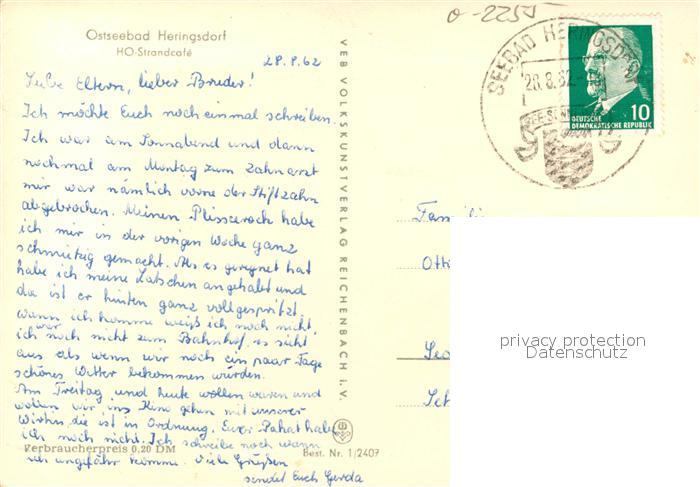 Ostseebad Heringsdorf
HO-Strandcafé
0-2255
28.8.62
Liebe Eltern, lieber Bruder!
Ich möchte Euch noch einmal schreiben.
Ich war am Sonnabend und dann
nochmal am Montag zum Zahnarzt
mir war nämlich vorne der Stiftzahn
abgebrochen. Meinen Plisseerock habe
ich mir in der vorigen Woche ganz
schmutzig gemacht. Als es geregnet hat
habe ich meine Latschen angehabt und
da ist er hinten ganz vollgespritzt.
Wann ich komme weiß ich noch nicht,
ich war noch nicht zum Bahnhof. es sieht
aus als wenn wir noch ein paar Tage
schönes Wetter bekommen würden.
Am Freitag und heute wollen waren und
wollen wir ins Kino gehen mit unserer
Wirtin, die ist in Ordnung. Euer Paket habe
ich noch nicht. Ich schreibe noch wann
ich ungefähr komme. Viele Grüßen
sendet Euch Gerda
Verbraucherpreis 0,20 DM
Best. Nr. 1/2407
VEB VOLKSKUNSTVERLAG REICHENBACH i. V.
SEEBAD HERINGSDORF
28.8.62
10
DEUTSCHE
DEMOKRATISCHE REPUBLIK
Famili
Otto
privacy protection
Datenschutz